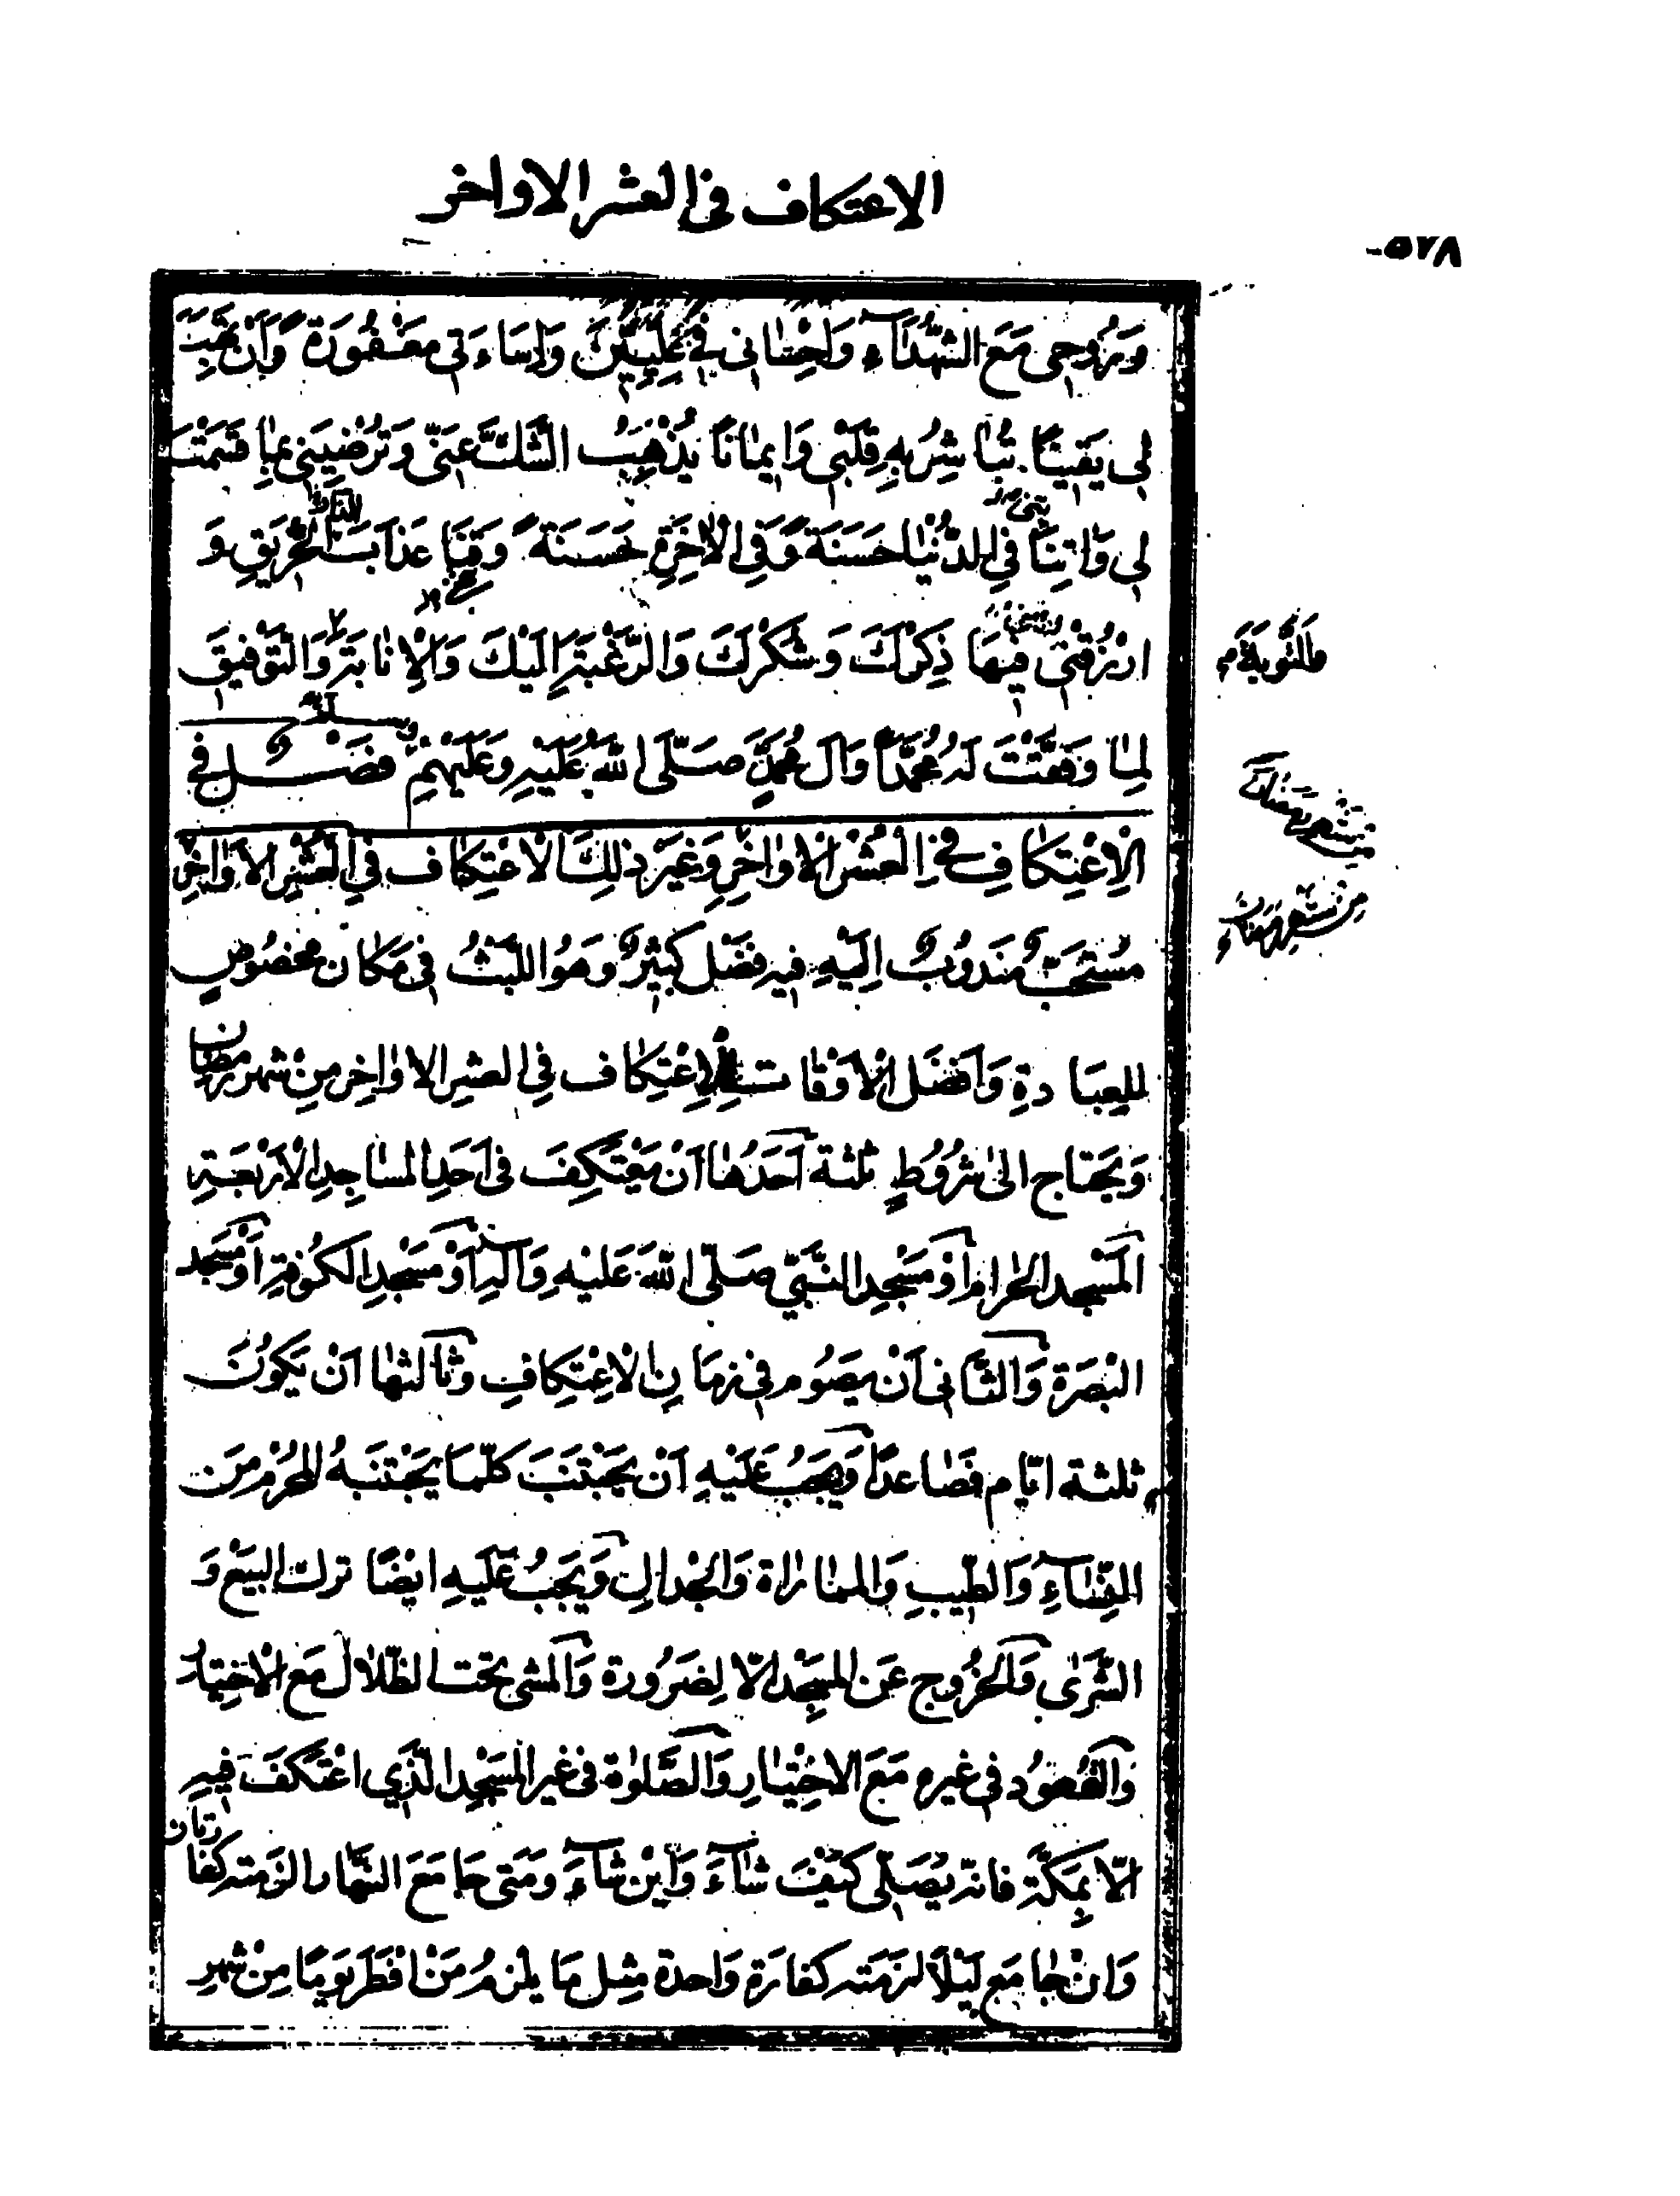 الاعتكاف في العشر الاواخر
-٥٧٨
وَرُوحِي مَعَ الشُّهَدَآءِ وَاِحْسَانِي فِي عِلِّيِّينَ وَاِسَاءَتِي مَغْفُورَةً وَاَنْ تَهَبَ
لِي يَقِينًا تُبَاشِرُ بِهِ قَلْبِي وَاِيمَانًا يُذْهِبُ الشَّكَّ عَنِّي وَتُرْضِيَنِي بِمَا قَسَمْتَ
لِي وَاٰتِنَا فِي الدُّنْيَا حَسَنَةً وَفِي الْاٰخِرَةِ حَسَنَةً وَقِنَا عَذَابَ الْحَرِيقِ وَ
ارْزُقْنِي فِيهَا ذِكْرَكَ وَشُكْرَكَ وَالرَّغْبَةَ اِلَيْكَ وَالْاِنَابَةَ وَالتَّوْفِيقَ
وَالتَّوْبَةَ
لِمَا وَفَّقْتَ لَهُ مُحَمَّدًا وَاٰلَ مُحَمَّدٍ صَلَّى اللّٰهُ عَلَيْهِ وَعَلَيْهِمْ فَصْلٌ فِي
الْاِعْتِكَافِ فِي الْعَشْرِ الْاَوَاخِرِ وَغَيْرِ ذٰلِكَ الْاعْتِكَاف فِي الْعَشْرِ الْاَوَاخِرِ
من شهر رمضان
من شهر رمضان
مُسْتَحَبٌّ مَنْدُوبٌ اِلَيْهِ فِيهِ فَضْلٌ كَبِيْرٌ وَهُوَ اللَّبْثُ فِي مَكَانٍ مَخْصُوصٍ
لِلْعِبَادَةِ وَاَفْضَلُ الْاَوْقَاتِ لِلْاِعْتِكَاف فِي العَشْرِ الاَوَاخِرِ مِنْ شهر رمضان
وَيَحْتَاج اِلىٰ شُرُوُطٍ ثلثة اَحَدُهٰا اَنْ يَعْتَكِفَ فِي اَحَدِ المسَاجِدِ الْاَرْبَعَةِ
الْمَسْجِد الحَرَامِ اَوْ مَسْجِدِ النَّبِيِّ صَلَّى اللّٰهَ عَلَيْهِ وَاٰلِهِ اَوْ مَسْجِدِ الكُوفَةِ اَوْ مَسْجِد
الْبَصْرَةِ وَالثَّانِي اَنْ يَصُوُم فِي زمَانِ الْاِعْتِكَافِ وَثَالثهَا اَنْ يَكُوُنَ
ثلثة اَيَّام فَصَاعدًا وَيَجِبُ عَلَيْهِ اَنْ يَجْتَنِبَ كلَّمَا يَجْتَنِبَهُ الْمُحْرِم مِنَ
النِّسَآءِ وَالطّيبِ وَالمماراة وَالجِدَالِ وَيَجِبُ عَلَيهِ ايْضًا ترك البَيْع وَ
الشَّرىٰ وَالخُرُوج عَن المَسْجِد اِلّا لِضَرُورة وَالمَشي تحت الظّلالِ مَع الْاخْتِيَار
وَالقُعُوُد فِي غيره مَعَ الاخْتِيَارِ وَالصَّلوٰة فِي غير الْمَسْجِدِ الَّذِي اعْتَكَفَ فِيهِ
الّا بِمَكَّةَ فَانّه يُصَلِّي كَيْفَ شَآءَ وَاَيْنَ شَآءَ وَمَتى جَامَعَ النَّهَار الزمته كفارتان
وَانْ جَامَع لَيْلًا لزمَته كفارة وَاحدة مِثل مَا يلزمُ مَنْ افْطَرَ يَوْمًا مِنْ شهرِ